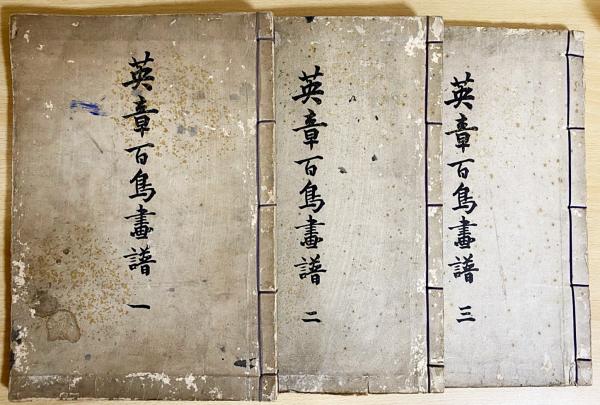 英章百鳥畫譜 一
英章百鳥畫譜 二
英章百鳥畫譜 三